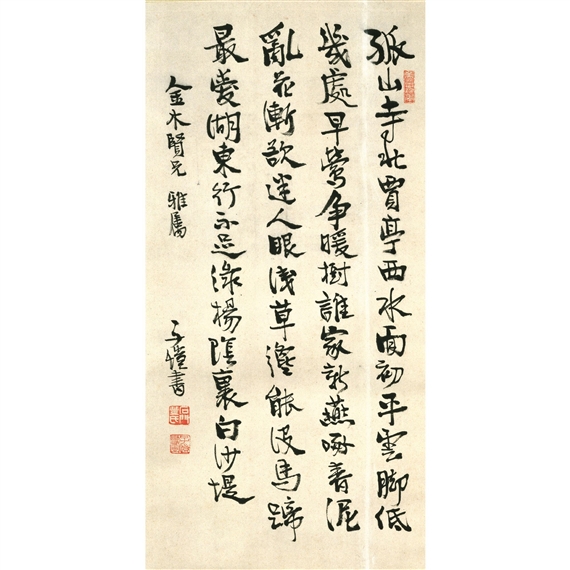 孤山寺北賈亭西水面初平雲脚低
幾處早鶯争暖樹誰家新燕啄春泥
亂花漸欲迷人眼淺草纔能没馬蹄
最愛湖東行不足綠楊陰裏白沙堤
金木賢兄 雅屬
子愷書